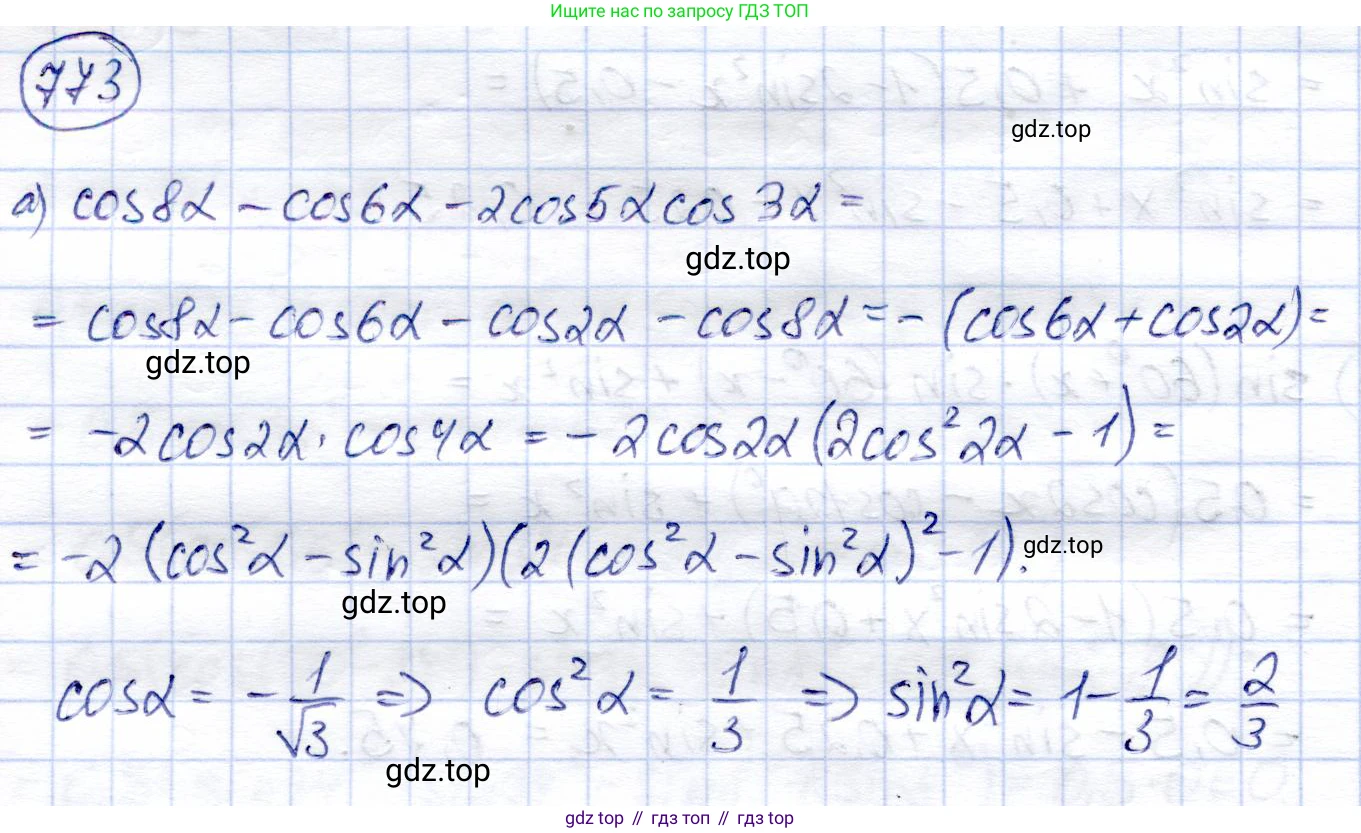 Ищите нас по запросу ГДЗ ТОП
773
gdz.top
а) cos8α - cos6α - 2cos5α cos3α =
gdz.top
= cos8α - cos6α - cos2α - cos8α = - (cos6α + cos2α) =
gdz.top
= -2cos2α · cos4α = - 2cos2α (2cos²2α - 1) =
= -2 (cos²α - sin²α)(2 (cos²α - sin²α)² - 1).
gdz.top
gdz.top
cosα = - 1/√3 => cos²α = 1/3 => sin²α = 1 - 1/3 = 2/3
gdz.top
gdz top // гдз топ // гдз top